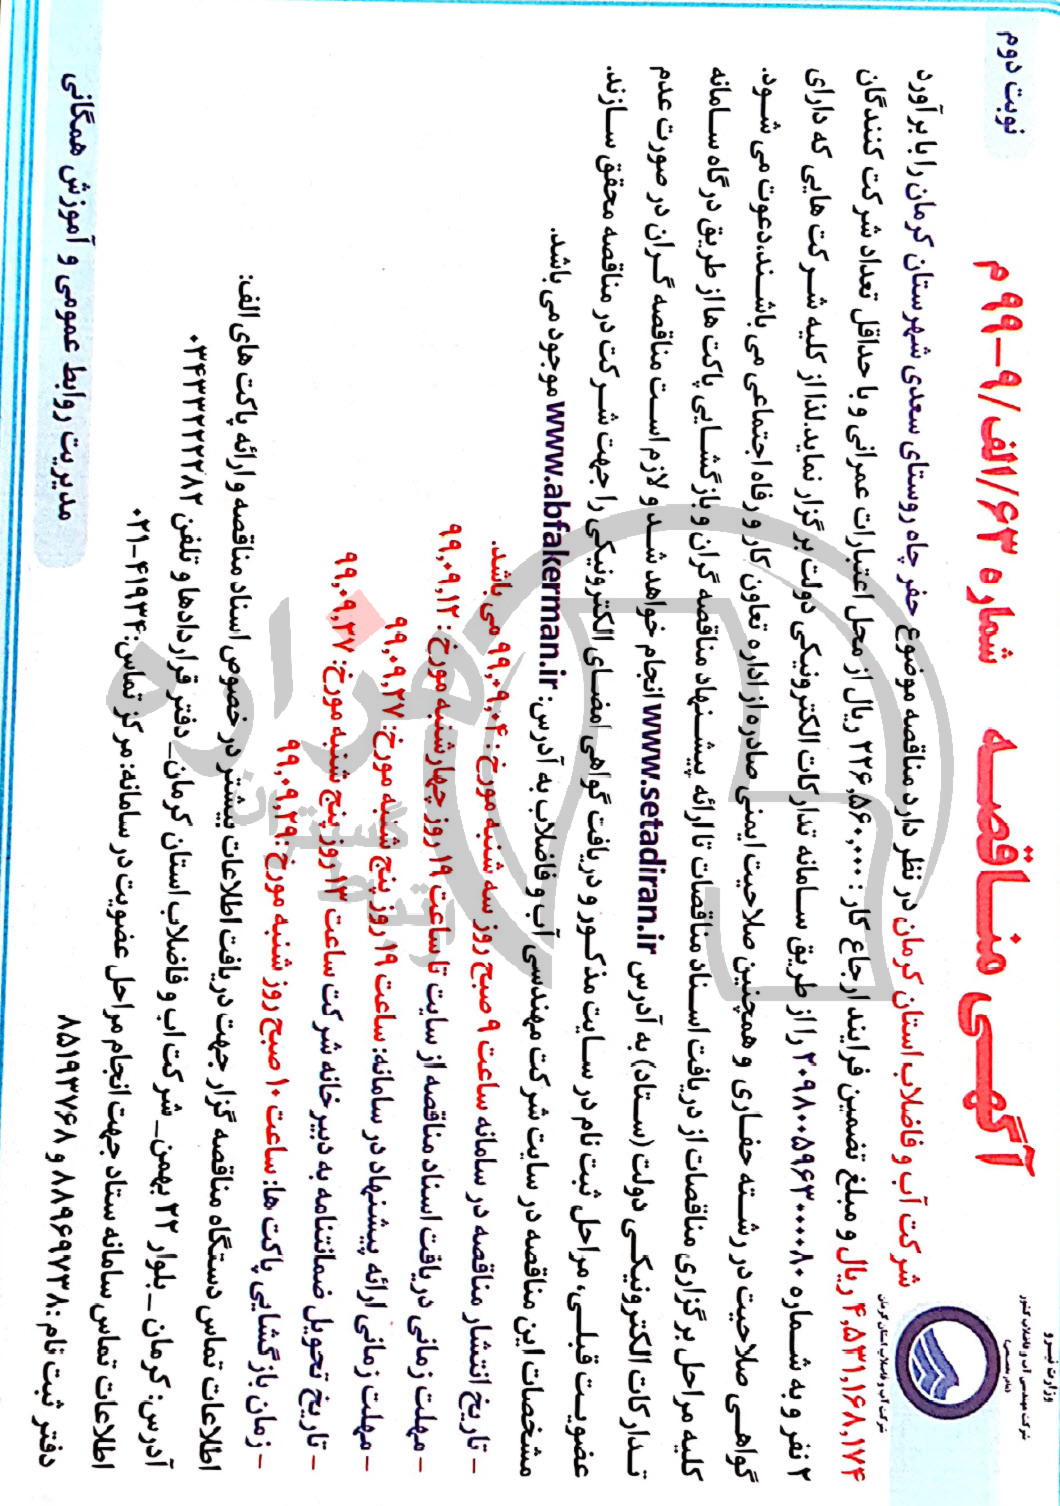 وزارت نیرو
شرکت مهندسی آب و فاضلاب کشور
(مادر تخصصی)
شرکت آب و فاضلاب استان کرمان
نوبت دوم
آگهی مناقصه شماره ۶۳/الف/۹-۹۹ م
شرکت آب و فاضلاب استان کرمان در نظر دارد مناقصه موضوع حفر چاه روستای سعدی شهرستان کرمان را با برآورد
۴,۵۳۱,۱۶۸,۱۷۴ ریال و مبلغ تضمین فرایند ارجاع کار : ۲۲۶,۵۶۰,۰۰۰ ریال از محل اعتبارات عمرانی و با حداقل تعداد شرکت کنندگان
۲ نفر و به شماره ۲۰۹۸۰۰۵۹۶۳۰۰۰۰۸۰ را از طریق سامانه تدارکات الکترونیکی دولت برگزار نماید.لذا از کلیه شرکت هایی که دارای
گواهی صلاحیت در رشته حفاری و همچنین صلاحیت ایمنی صادره از اداره تعاون کار و رفاه اجتماعی می باشند،دعوت می شود.
کلیه مراحل برگزاری مناقصات از دریافت اسناد مناقصات تا ارائه پیشنهاد مناقصه گران و بازگشایی پاکت ها از طریق درگاه سامانه
تدارکات الکترونیکی دولت (ستاد) به آدرس www.setadiran.ir انجام خواهد شد و لازم است مناقصه گران در صورت عدم
عضویت قبلی، مراحل ثبت نام در سایت مذکور و دریافت گواهی امضای الکترونیکی را جهت شرکت در مناقصه محقق سازند.
مشخصات این مناقصه در سایت شرکت مهندسی آب و فاضلاب به آدرس: www.abfakerman.ir موجود می باشد.
- تاریخ انتشار مناقصه در سامانه ساعت ۹ صبح روز سه شنبه مورخ : ۹۹,۰۹,۰۴ می باشد.
- مهلت زمانی دریافت اسناد مناقصه از سایت تا ساعت ۱۹ روز چهارشنبه مورخ : ۹۹,۰۹,۱۲
- مهلت زمانی ارائه پیشنهاد در سامانه: ساعت ۱۹ روز پنج شنبه مورخ: ۹۹,۰۹,۲۷
- تاریخ تحویل ضمانتنامه به دبیرخانه شرکت ساعت ۱۳ روز پنج شنبه مورخ: ۹۹,۰۹,۲۷
- زمان بازگشایی پاکت ها: ساعت ۱۰ صبح روز شنبه مورخ :۹۹,۰۹,۲۹
اطلاعات تماس دستگاه مناقصه گزار جهت دریافت اطلاعات بیشتر در خصوص اسناد مناقصه و ارائه پاکت های الف:
آدرس: کرمان _ بلوار ۲۲ بهمن_ شرکت اب و فاضلاب استان کرمان_ دفتر قراردادها و تلفن ۰۳۴۳۳۲۲۲۲۸۲
اطلاعات تماس سامانه ستاد جهت انجام مراحل عضویت در سامانه: مرکز تماس:۴۱۹۳۴-۰۲۱
دفتر ثبت نام :۸۸۹۶۹۷۳۸ و ۸۵۱۹۳۷۶۸
مدیریت روابط عمومی و آموزش همگانی